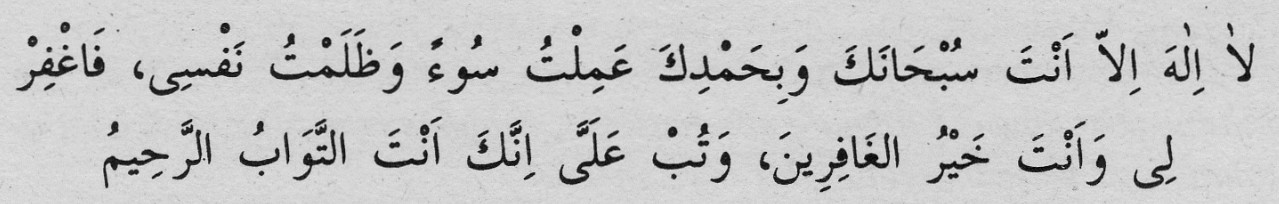 لاٰ اِلٰهَ اِلاّ اَنْتَ سُبْحَانَكَ وَبِحَمْدِكَ عَمِلْتُ سُوءً وَظَلَمْتُ نَفْسِى، فَاغْفِرْ
لِى وَاَنْتَ خَيْرُ الغَافِرِينَ، وَتُبْ عَلَىَّ اِنَّكَ اَنْتَ التَّوَابُ الرَّحِيمُ